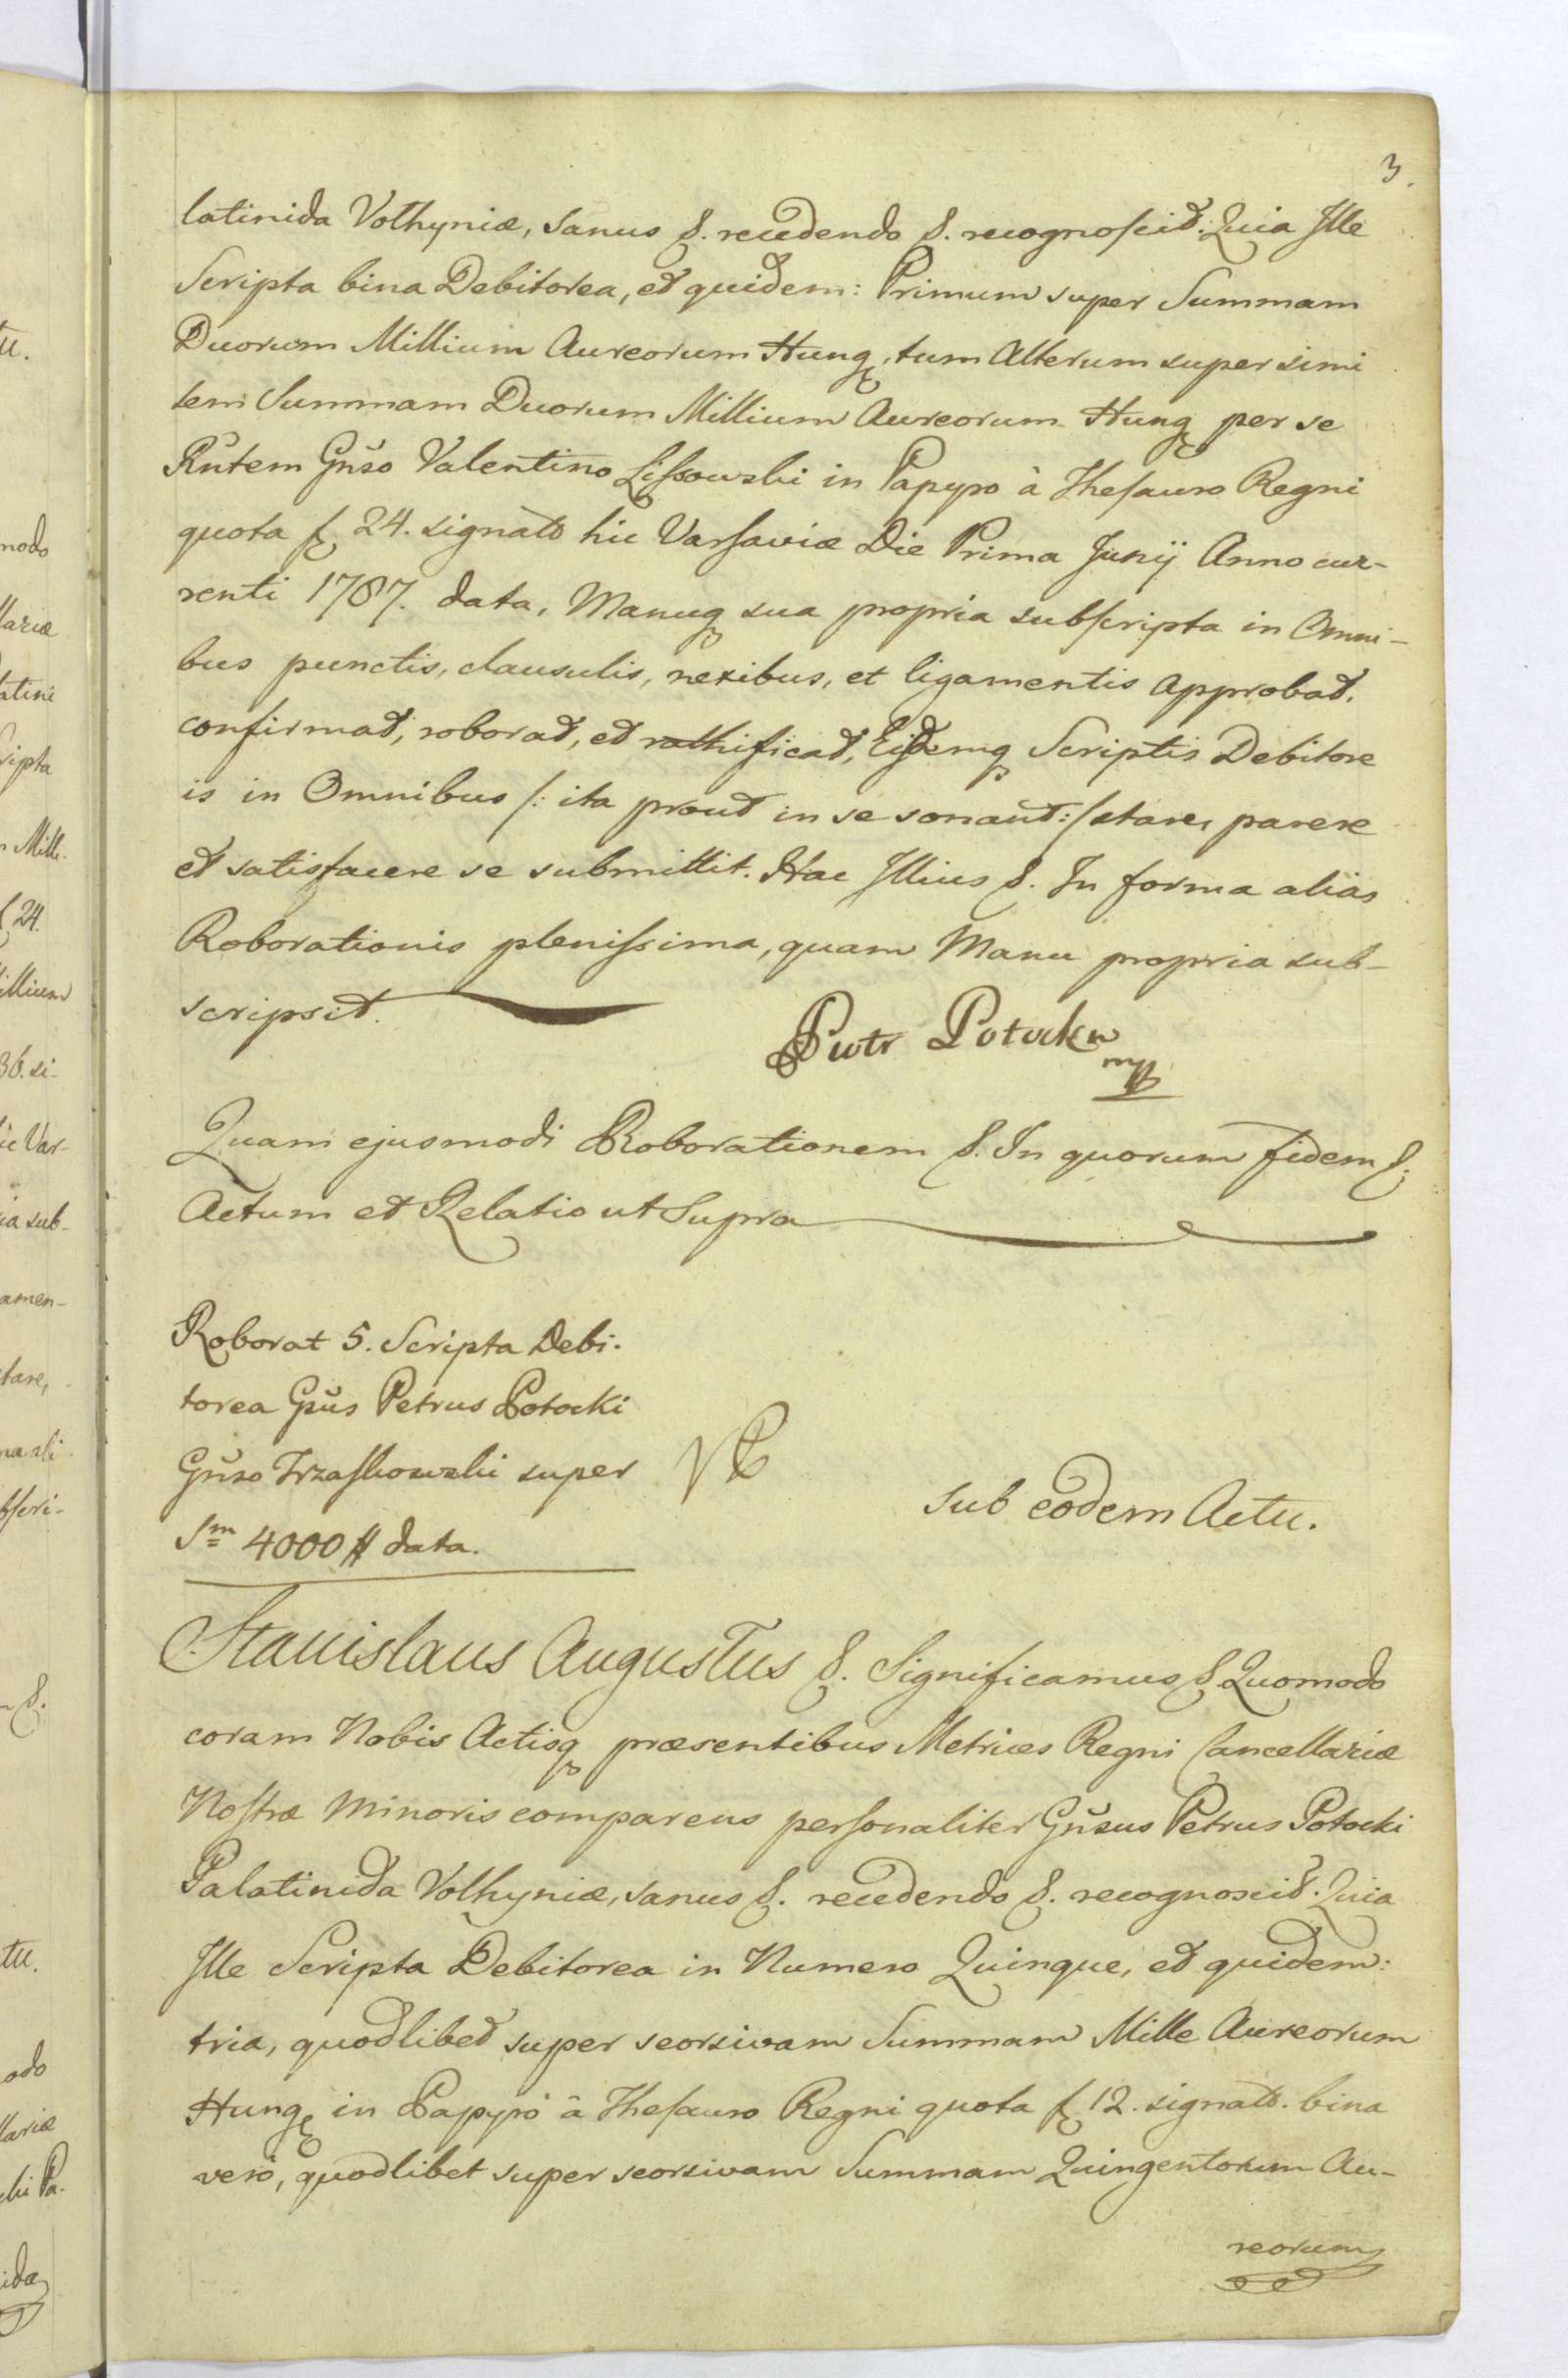 3.
latinida Volhyniæ, sanus &. recedendo &. recognoscit: Quia Ille
Scripta bina Debitorea, et quidem: Primum super Summam
Duorum Millium Aureorum Hungq, tum Alterum super simi
lem Summam Duorum Millium Aureorum Hungq per se
Rñtem Gñso Valentino Lissowski in Papyro à Thesauro Regni
quota f 24. signato hic Varsaviæ Die Prima Junÿ Anno cur-
renti 1787. data, Manuq sua propria subscripta in Omni-
bus punctis, clausulis, nexibus, et ligamentis approbat,
confirmat, roborat, et rathificat, Eisdemq Scriptis Debitore
is in Omnibus /: ita prout in se sonant :/ stare, parere
et satisfacere se submittit. Hac Illius &. In forma aliàs
Roborationis plenissima, quam Manu propria sub-
scripsit.
Piotr Potocki
mp
Quam ejusmodi Roborationem &. In quorum fidem &.
Actum et Relatio ut Supra
Roborat 5. Scripta Debi-
torea Gñs Petrus Potocki
Gñso Trzaskowski super
Sm 4000 # data.
sub eodem Actu.
Stanislaus Augustus &. Significamus & Quomodo
coram Nobis Actisq præsentibus Metrices Regni Cancellariæ
Nostræ Minoris comparens personaliter Gñsus Petrus Potocki
Palatinida Volhyniæ, sanus &. recedendo &. recognoscit: Quia
Ille Scripta Debitorea in Numero Quinque, et quidem:
tria, quodlibet super seorsivam Summam Mille Aureorum
Hungq in Papyro à Thesauro Regni quota f 12. signato. bina
verò, quodlibet super seorsivam Summam Quingentorum Au-
reorum
tu.
modo
llariæ
latini
cripta
Mill.
24.
illium
36. si-
ic Var-
ia sub-
amen-
stare,
ma ali
bscri-
&.
tu.
odo
lariæ
cki Pa-
ida